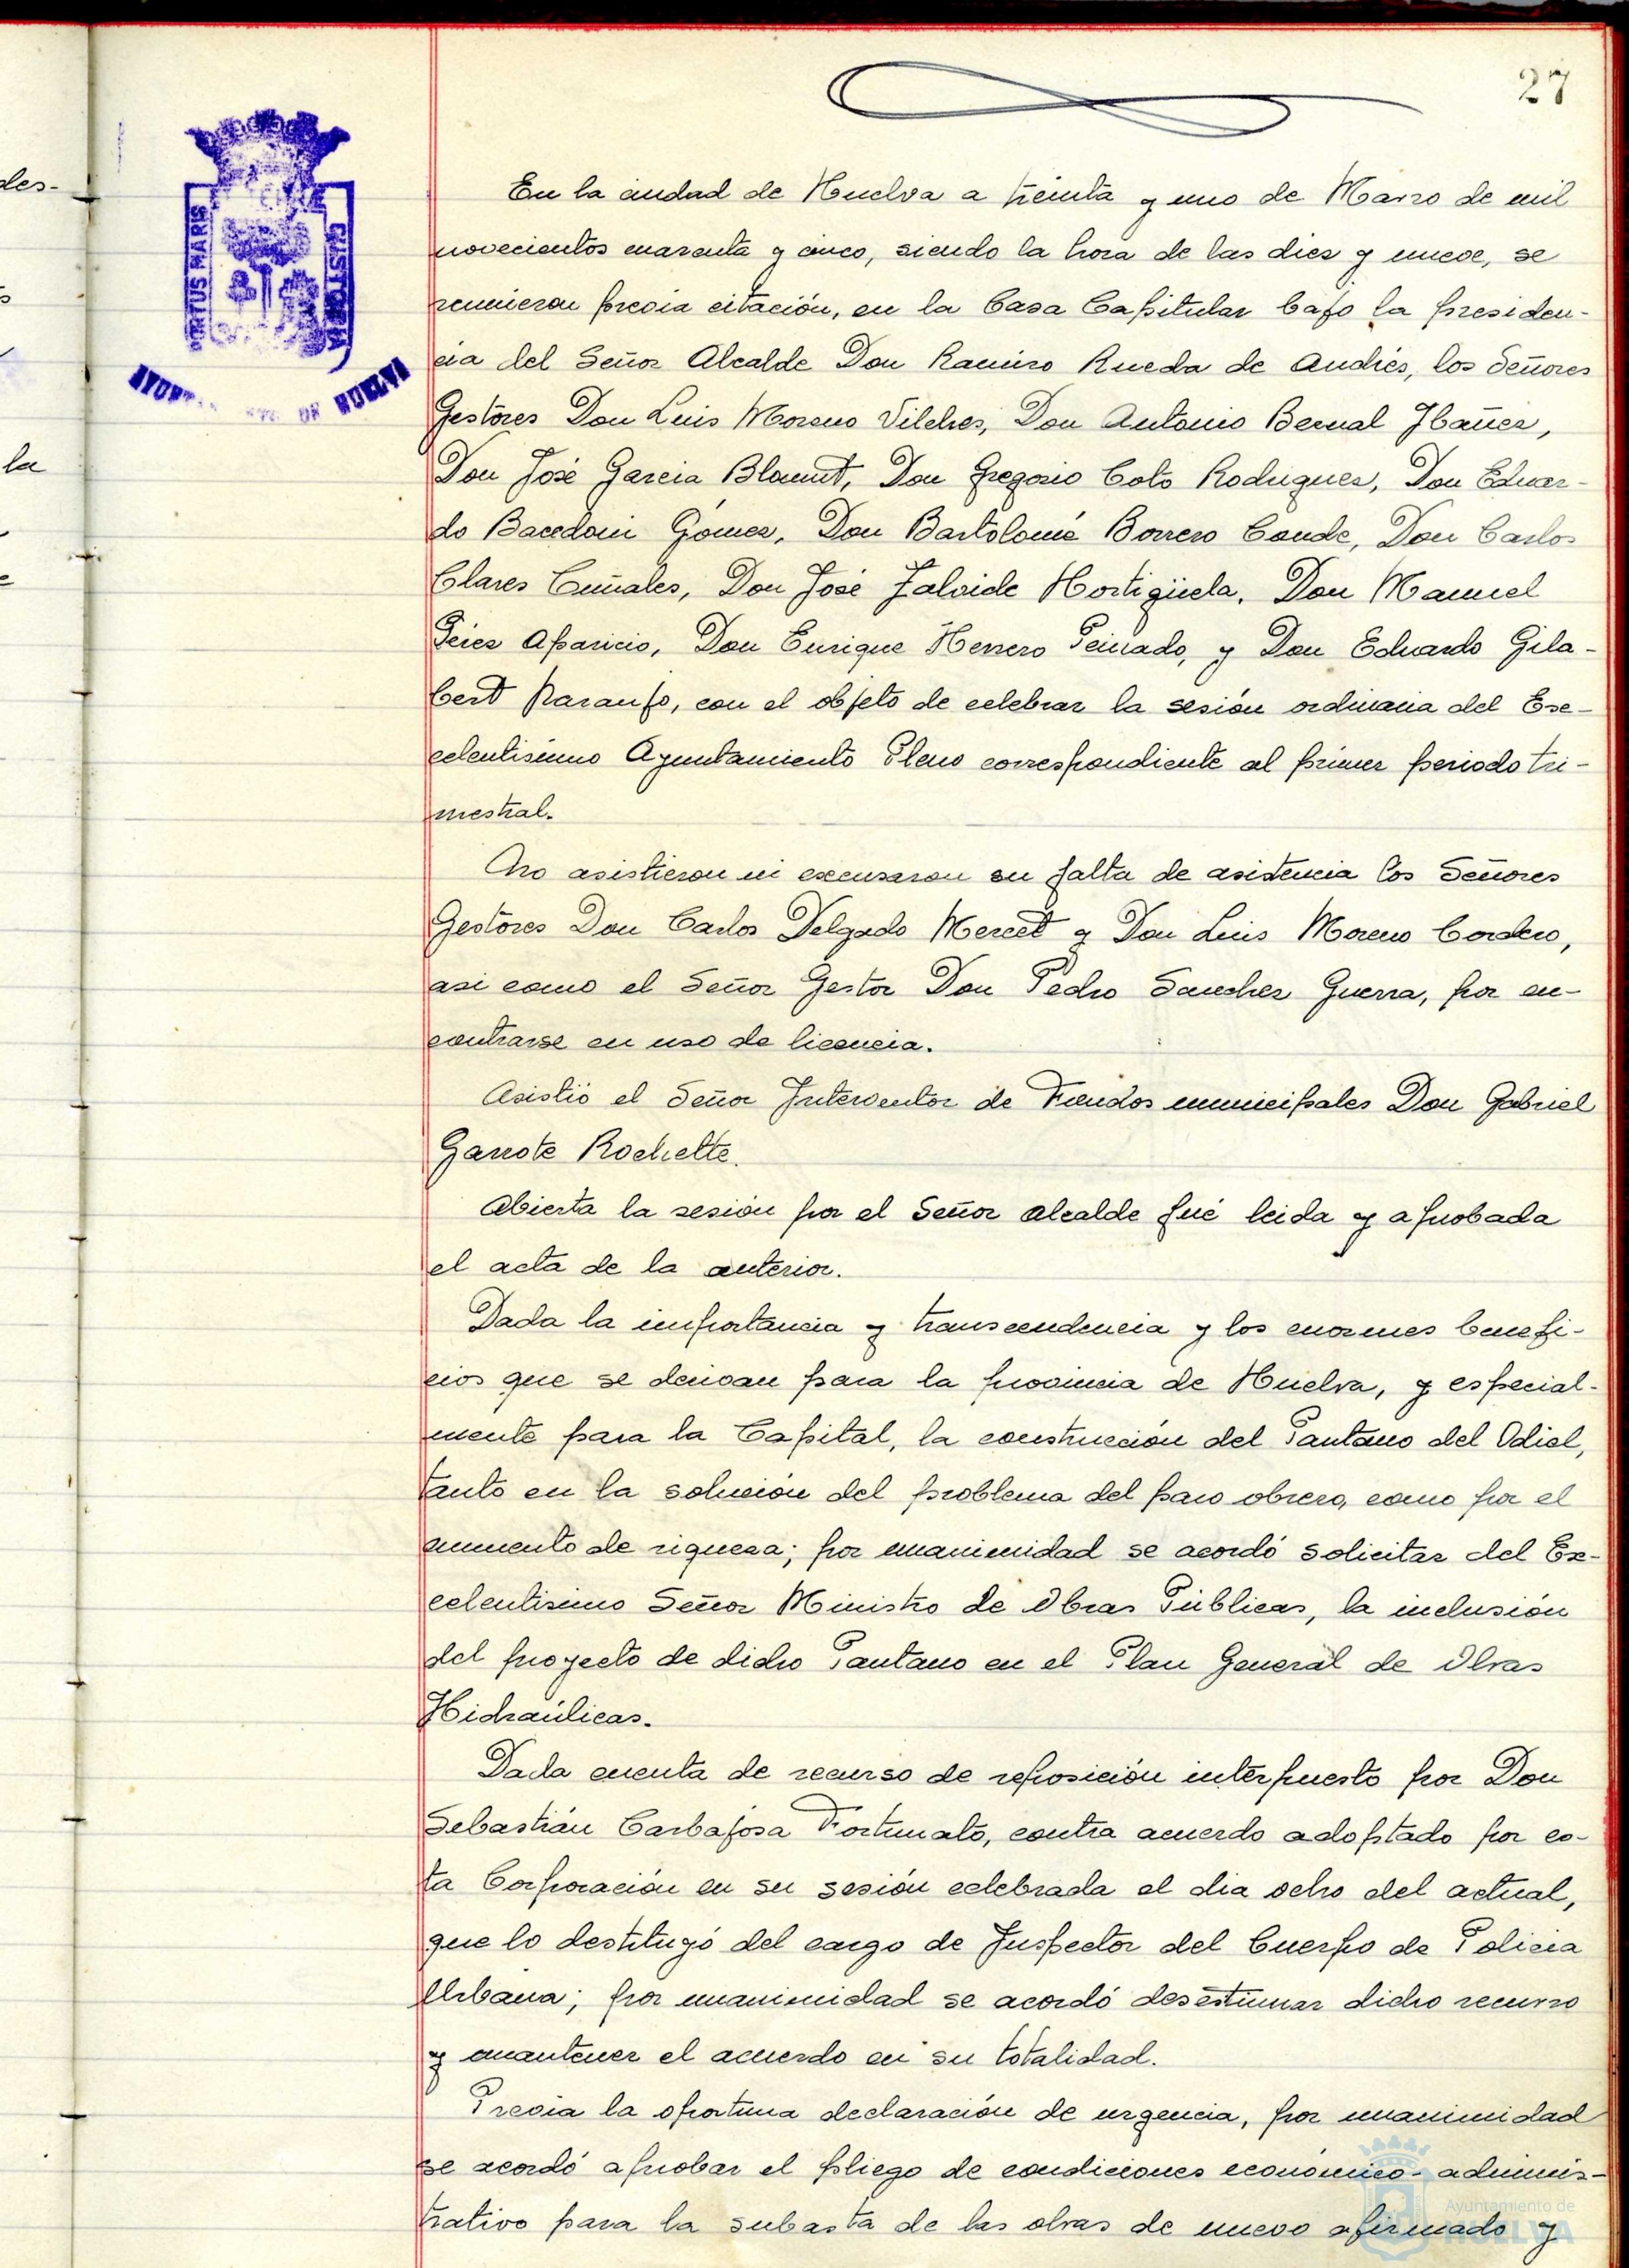 27
En la ciudad de Huelva a treinta y uno de Marzo de mil
novecientos cuarenta y cinco, siendo la hora de las diez y nueve, se
reunieron previa citación, en la Casa Capitular bajo la presiden-
cia del Señor Alcalde Don Ramiro Rueda de Andrés, los Señores
Gestores Don Luis Moreno Vilches, Don Antonio Bernal Ibañez,
Don José Garcia Blount, Don Gregorio Coto Rodriguez, Don Eduar-
do Gómez, Don Bartolomé Borrero Conde, Don Carlos
Clares Don José Jalvide Hortigüela, Don Manuel
Aparicio, Don Enrique Herrero Peinado, y Don Eduardo Gila-
bert Naranjo, con el objeto de celebrar la sesión ordinaria del Exc-
celentisimo Ayuntamiento Pleno correspondiente al primer periodo tri-
mestral.
No asistieron ni excusaron su falta de asistencia los Señores
Gestores Don Carlos Delgado Mercet y Don Luis Moreno Cordero,
asi como el Señor Gestor Don Pedro Sanchez Guerra, por en-
contrarse en uso de licencia.
Asistió el Señor Interventor de Fondos municipales Don Gabriel
Garrote Rochette.
Abierta la sesión por el Señor Alcalde fué leida y aprobada
el acta de la anterior.
Dada la importancia y transcendencia y los enormes benefi-
cios que se derivan para la provincia de Huelva, y especial-
mente para la Capital, la construcción del Pantano del Odiel,
tanto en la solución del problema del paro obrero, como por el
aumento de riqueza; por unanimidad se acordó solicitar del Ex-
celentisimo Señor Ministro de Obras Públicas, la inclusión
del proyecto de dicho Pantano en el Plan General de Obras
Hidraúlicas.
Dada cuenta de recurso de reposición interpuesto por Don
Sebastián Carbajosa Fortunato, contra acuerdo adoptado por es-
ta Corporación en su sesión celebrada el dia ocho del actual,
que lo destituyó del cargo de Inspector del Cuerpo de Policia
Urbana; por unanimidad se acordó desestimar dicho recurso
y mantener el acuerdo en su totalidad.
Previa la oportuna declaración de urgencia, por unanimidad
se acordó aprobar el pliego de condiciones económico-adminis-
trativo para la subasta de las obras de nuevo afirmado y
PORTUS MARIS
CUSTODIA
DE HUELVA
des-
la
Ayuntamiento de
HUELVA